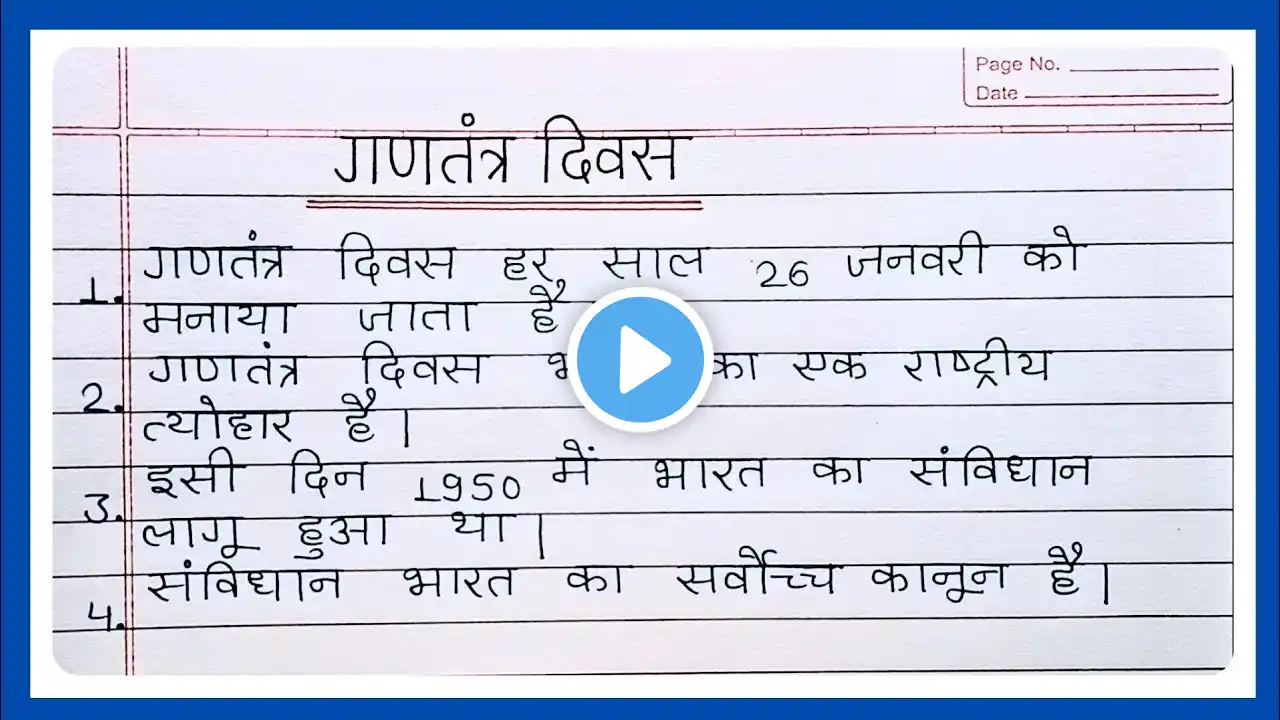 Page No.
Date
गणतंत्र दिवस
1. गणतंत्र दिवस हर साल 26 जनवरी को
मनाया जाता है
2. गणतंत्र दिवस का एक राष्ट्रीय
त्योहार है।
3. इसी दिन 1950 में भारत का संविधान
लागू हुआ था।
4. संविधान भारत का सर्वोच्च कानून है।